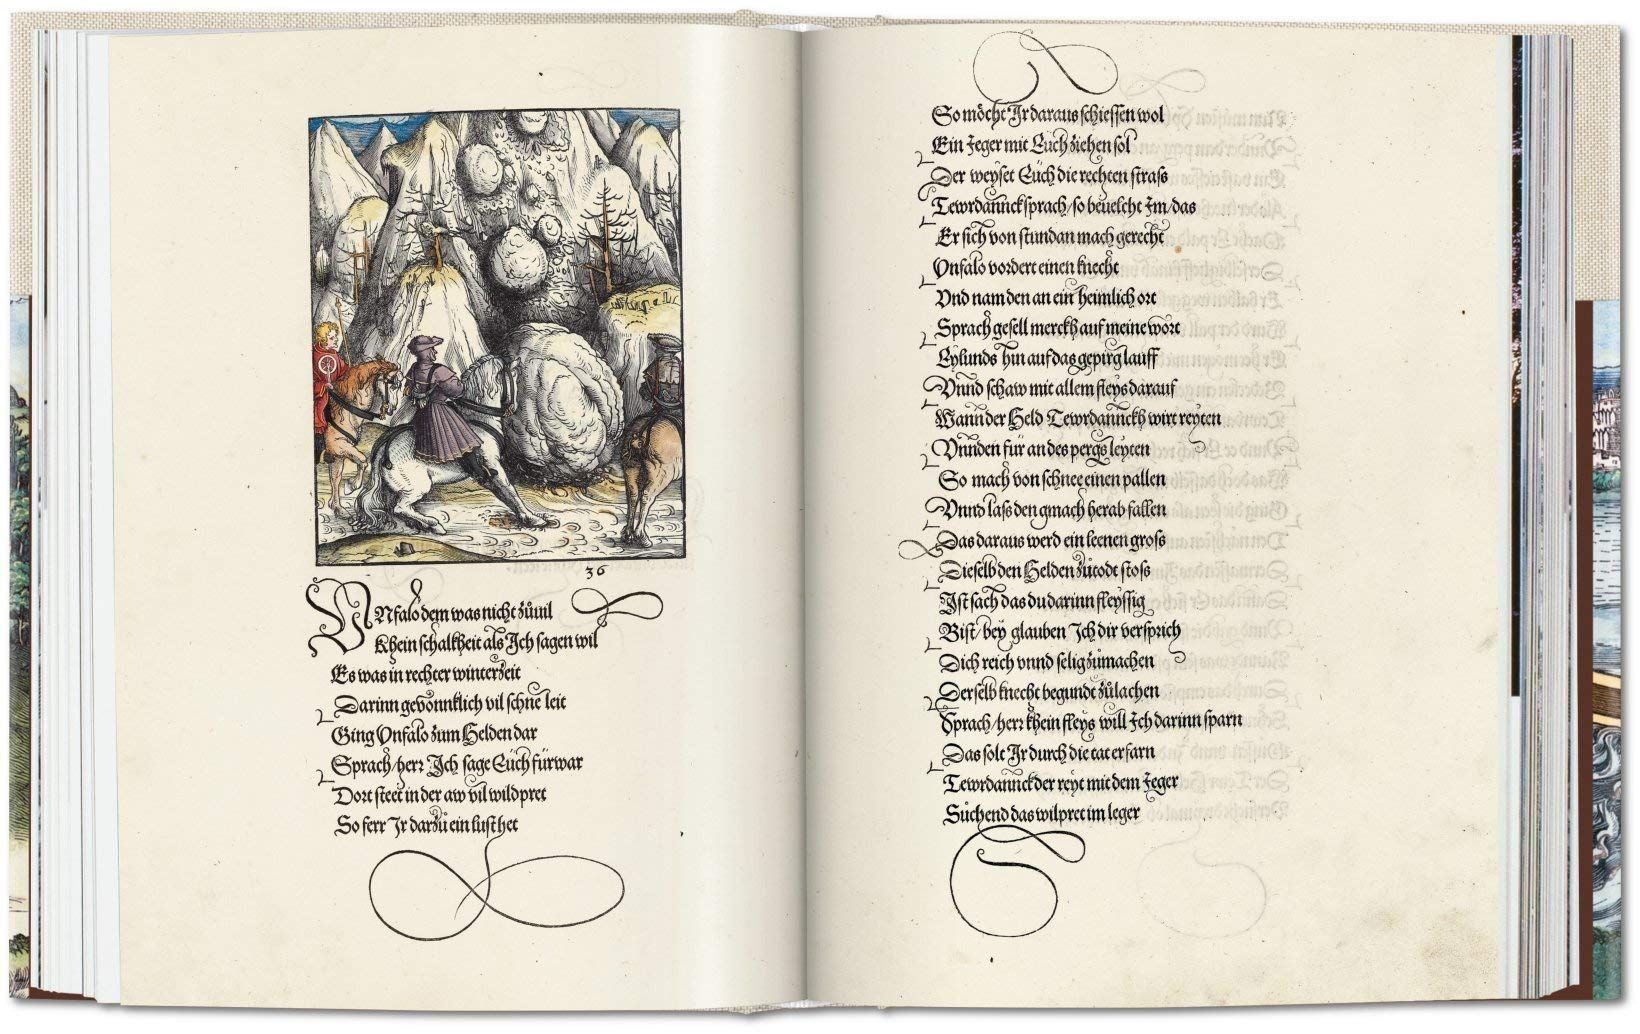 36
UNfalo dem was nicht zůuil
Khein schalkheit als Ich sagen wil
Es was in rechter winterzeit
Darinn gevönnklich vil schne leit
Ging Vnfalo zum Helden dar
Sprach/herr Ich sage Euch fürwar
Dort steet in der aw vil wildpret
So ferr Ir darzů ein lust het
So möcht Ir daraus schiessen wol
Ein Jeger mit Euch ziehen sol
Der weyset Euch die rechten strass
Tewrdannck sprach/so beuelcht Im/das
Er sich von stundan mach gerecht
Vnfalo vordert einen knecht
Vnd nam den an ein heimlich ort
Sprach gesell merckh auf meine wort
Eylunds hin auf das gepirg lauff
Vnnd schaw mit allem fleys darauf
Wann der Held Tewrdannckh wirt reyten
Vnnden für an des pergs leyten
So mach von schnee einen pallen
Vnnd lass den gmach herab fallen
Das daraus werd ein leenen gross
Dieselb den Helden zůtodt stoss
Ist sach das du darinn fleyssig
Bist/bey glauben Ich dir versprich
Dich reich vnnd selig zůmachen
Derselb knecht begundt zůlachen
Sprach/herr khein fleys will Ich darinn sparn
Das solt Ir durch die tat erfarn
Tewrdannck der reyt mit dem Jeger
Sůchend das wilpret im leger